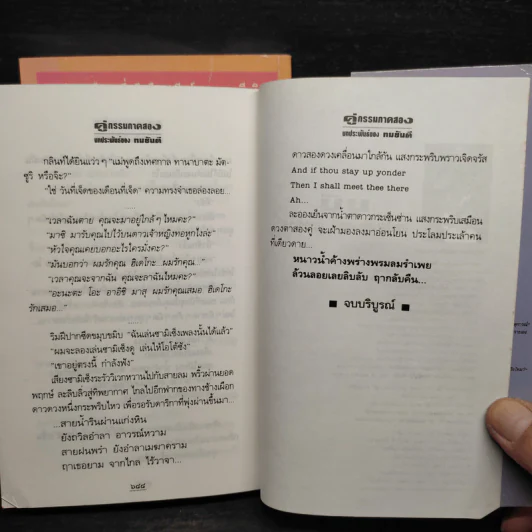 คู่กรรมภาคสอง
บทประพันธ์ของ ทมยันตี
กลินท์ได้ยินแว่วๆ "แม่พูดถึงเทศกาล ทานาบาตะ มัต-
ซูริ หรือจ๊ะ?"
"ใช่ วันที่เจ็ดของเดือนที่เจ็ด" ความทรงจำเธอล่องลอย...
"เวลาฉันตาย คุณจะมาอยู่ใกล้ๆ ไหมคะ?"
"มาซิ มารับคุณไปไว้บนดาวเจ้าหญิงทอหูกไงล่ะ"
"หัวใจคุณเคยบอกอะไรใครมั่งคะ?"
"มันบอกว่า ผมรักคุณ ฮิเดโกะ ผมรักคุณ..."
"เวลาคุณจะจากฉัน คุณจะลาฉันไหมคะ?"
"อะนะตะ โอะ อาอิชิ มาสุ ผมรักคุณเสมอ ฮิเดโกะ
รักเสมอ..."
ริมฝีปากซีดขมุบขมิบ "ฉันเล่นซามิเซ็งเพลงนั้นได้แล้ว"
"ผมจะลองเล่นซามิเซ็งดู เล่นให้โอโต้ซัง"
"เขาอยู่ตรงนี้ กำลังฟัง"
เสียงซามิเซ็งระรัววิเวกหวานไปกับสายลม พริ้วผ่านยอด
พฤกษ์ ละลิบลิ่วสู่ทิพยากาศ ไกลไปอีกฟากของทางช้างเผือก
ดาวดวงหนึ่งกระพริบไหว เพื่อรอรับดาริกาที่พุ่งผ่านขึ้นมา...
...สายน้ำรินผ่านแก่งหิน
ยังถวิลอำลา อาวรณ์หวาม
สายฝนพรำ ยังอำลาเมฆาคราม
ฤาเธอยาม จากไกล ไร้วาจา...
๖๔๔
คู่กรรมภาคสอง
บทประพันธ์ของ ทมยันตี
ดาวสองดวงเคลื่อนมาใกล้กัน แสงกระพริบพราวเจิดจรัส
And if thou stay up yonder
Then I shall meet thee there
Ah...
ละอองเย็นจากน้ำตาดาวกระเซ็นซ่าน แสงกระพริบเสมือน
ดวงตาสองคู่ จะเฝ้ามองลงมาอ่อนโยน ประโลมประเล้าคน
ที่เดียวดาย...
หนาวน้ำค้างพร่างพรมลมรำเพย
ล้วนลอยเลยลิบลับ ฤากลับคืน...
■ จบบริบูรณ์ ■